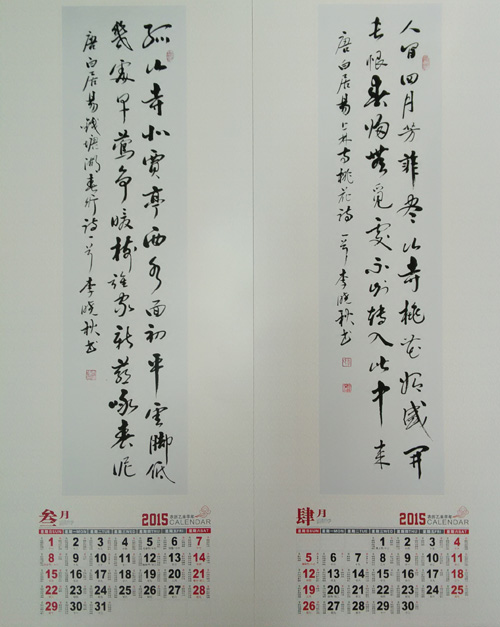 孤山寺北賈亭西水面初平雲脚低
幾處早鶯争暖樹誰家新燕啄春泥
唐白居易錢塘湖春行詩一首李晓秋书
叁月
2015
CALENDAR
1 2 3 4 5 6 7
8 9 10 11 12 13 14
15 16 17 18 19 20 21
22 23 24 25 26 27 28
29 30 31
人间四月芳菲尽山寺桃花始盛开
长恨春归無覓處不知转入此中来
唐白居易大林寺桃花詩一首李晓秋书
肆月
2015
CALENDAR
1 2 3 4
5 6 7 8 9 10 11
12 13 14 15 16 17 18
19 20 21 22 23 24 25
26 27 28 29 30